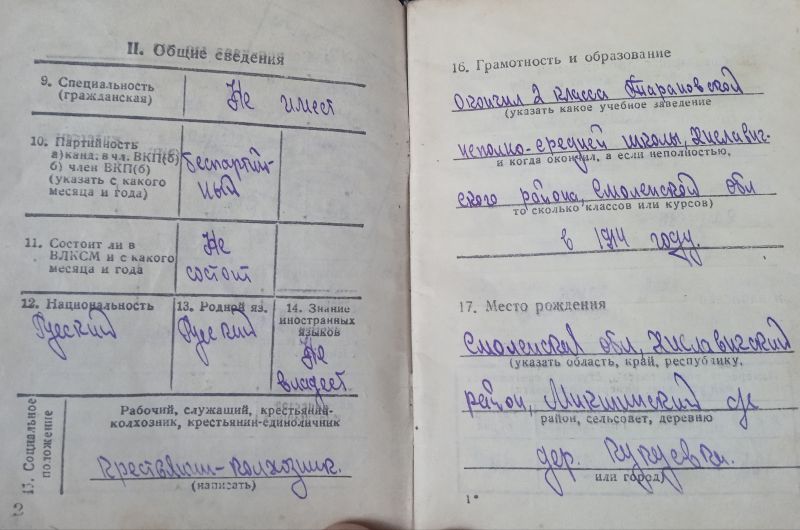 II. Общие сведения
9. Специальность
(гражданская)
Не имеет
10. Партийность
а) канд. в чл. ВКП(б)
б) член ВКП(б)
(указать с какого
месяца и года)
беспартий-
ный
11. Состоит ли в
ВЛКСМ и с какого
месяца и года
Не
состоит
12. Национальность
Русский
13. Родной яз.
Русский
14. Знание
иностранных
языков
Не
владеет
15. Социальное
положение
Рабочий, служащий, крестьянин-
колхозник, крестьянин-единоличник
крестьянин-колхозник.
(написать)
2
16. Грамотность и образование
Окончил 2 класса Тарановской
(указать какое учебное заведение
неполно-средней школы, Хиславич-
и когда окончил, а если неполностью,
ского района, Смоленской обл
то сколько классов или курсов)
в 1914 году.
17. Место рождения
Смоленская обл, Хиславичский
(указать область, край, республику,
район, с/с
район, сельсовет, деревню
дер.
или город)
1*